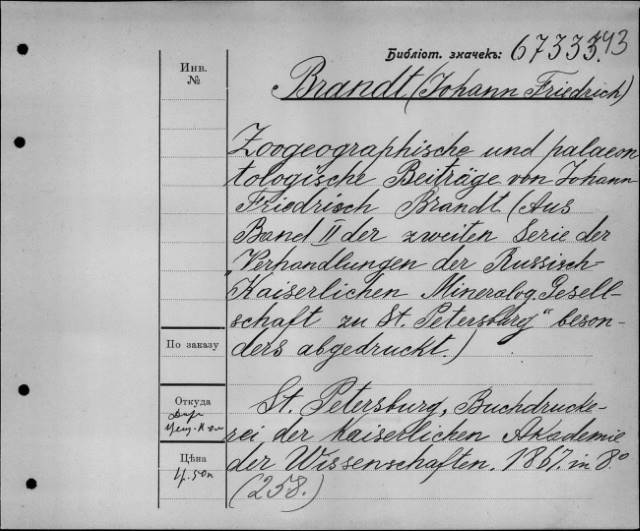 Библіот. значекъ: 67333.43
Инв.
№
Brandt (Johann Friedrich)
Zoogeographische und palaeon
tologische Beiträge von Johann
Friedrisch Brandt (Aus
Band II der zweiten Serie der
„Verhandlungen der Russisch-
Kaiserlichen Mineralog. Gesell-
schaft zu St. Petersburg“ beson-
ders abgedruckt.)
По заказу
St. Petersburg, Buchdrucke-
rei der Kaiserlichen Akademie
der Wissenschaften. 1867. in 8.°
(258.)
Откуда
Дар
Цѣна
4.50к